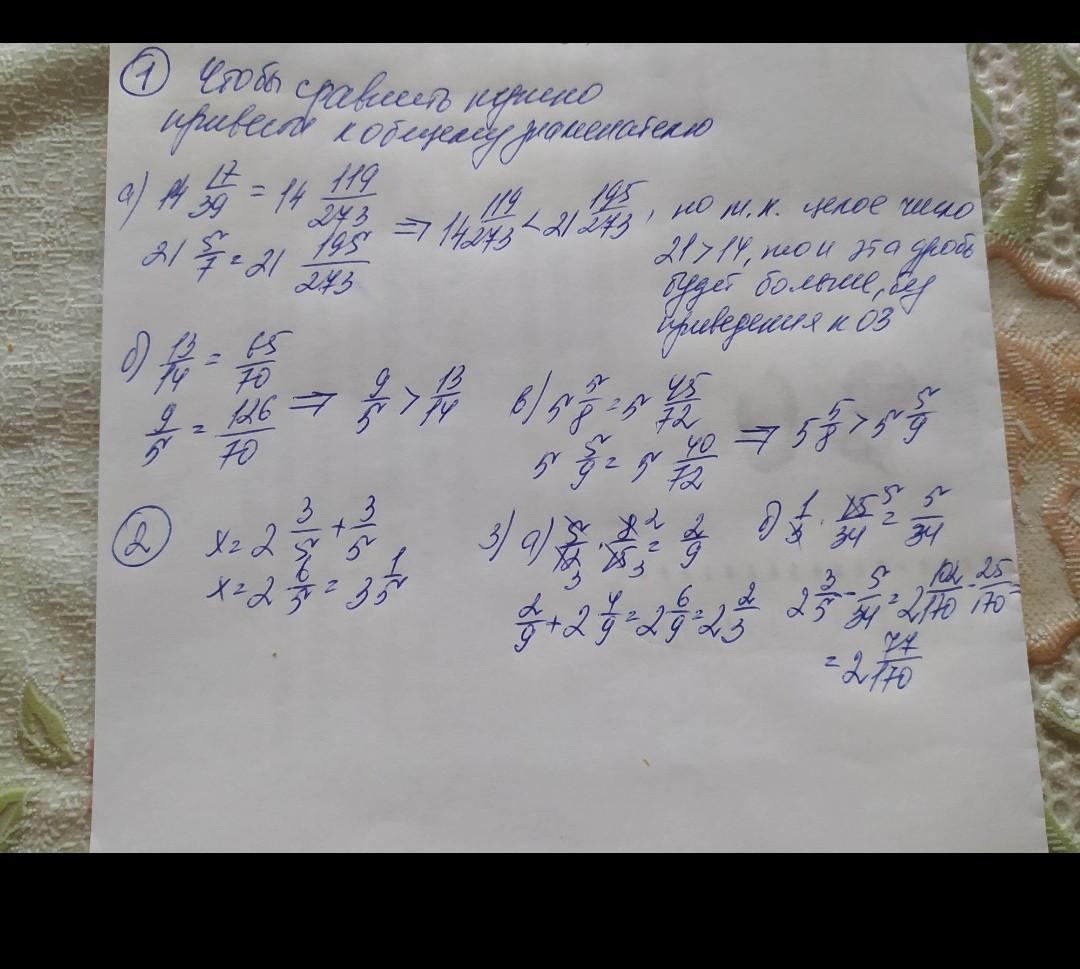 ① Чтобы сравнить нужно
привести к общему знаменателю
а) 14 17/39 = 14 119/273 ⇒ 14 119/273 < 21 195/273, но т.к. целое число
21 5/7 = 21 195/273
21 > 14, то и эта дробь
будет больше, без
приведения к ОЗ
б) 13/14 = 65/70
9/5 = 126/70 ⇒ 9/5 > 13/14
в) 5 5/8 = 5 45/72
5 5/9 = 5 40/72 ⇒ 5 5/8 > 5 5/9
② x = 2 3/5 + 3/5
x = 2 6/5 = 3 1/5
3) а) 5/12 3 · 8/15 2 3 = 2/9
2/9 + 2 4/9 = 2 6/9 = 2 2/3
б) 1/3 · 15/34 5 = 5/34
2 3/5 - 5/34 = 2 102/170 - 25/170 =
= 2 77/170